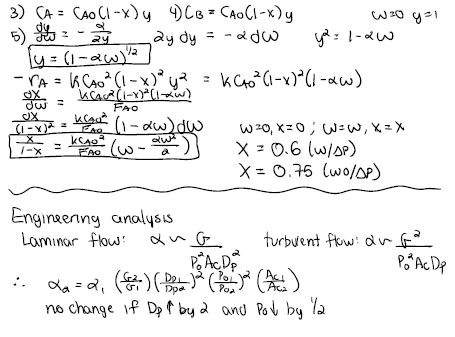 3) CA = CAO(1-X) y 4) CB = CAO(1-X) y w=0 y=1
5) dy/dw = - α/2y 2y dy = -αdw y² = 1-αw
y = (1-αw)^1/2
-rA = kCAO²(1-x)² y² = kCAO²(1-x)²(1-αw)
dX/dw = kCAO²(1-x)²(1-αw)/FAO
dX/(1-x)² = kCAO²/FAO (1-αw)dw w=0, x=0 ; w=w, x=x
X/1-X = kCAO²/FAO (w - αw²/2) X = 0.6 (w/ΔP)
X = 0.75 (wo/ΔP)
Engineering analysis
Laminar flow: α ~ G/Po²AcDp² turbulent flow: α ~ G²/Po²AcDp
∴ α2 = α1 (G2/G1) (Dp1/Dp2)² (Po1/Po2)² (Ac1/Ac2)
no change if Dp↑ by 2 and Po↓ by 1/2